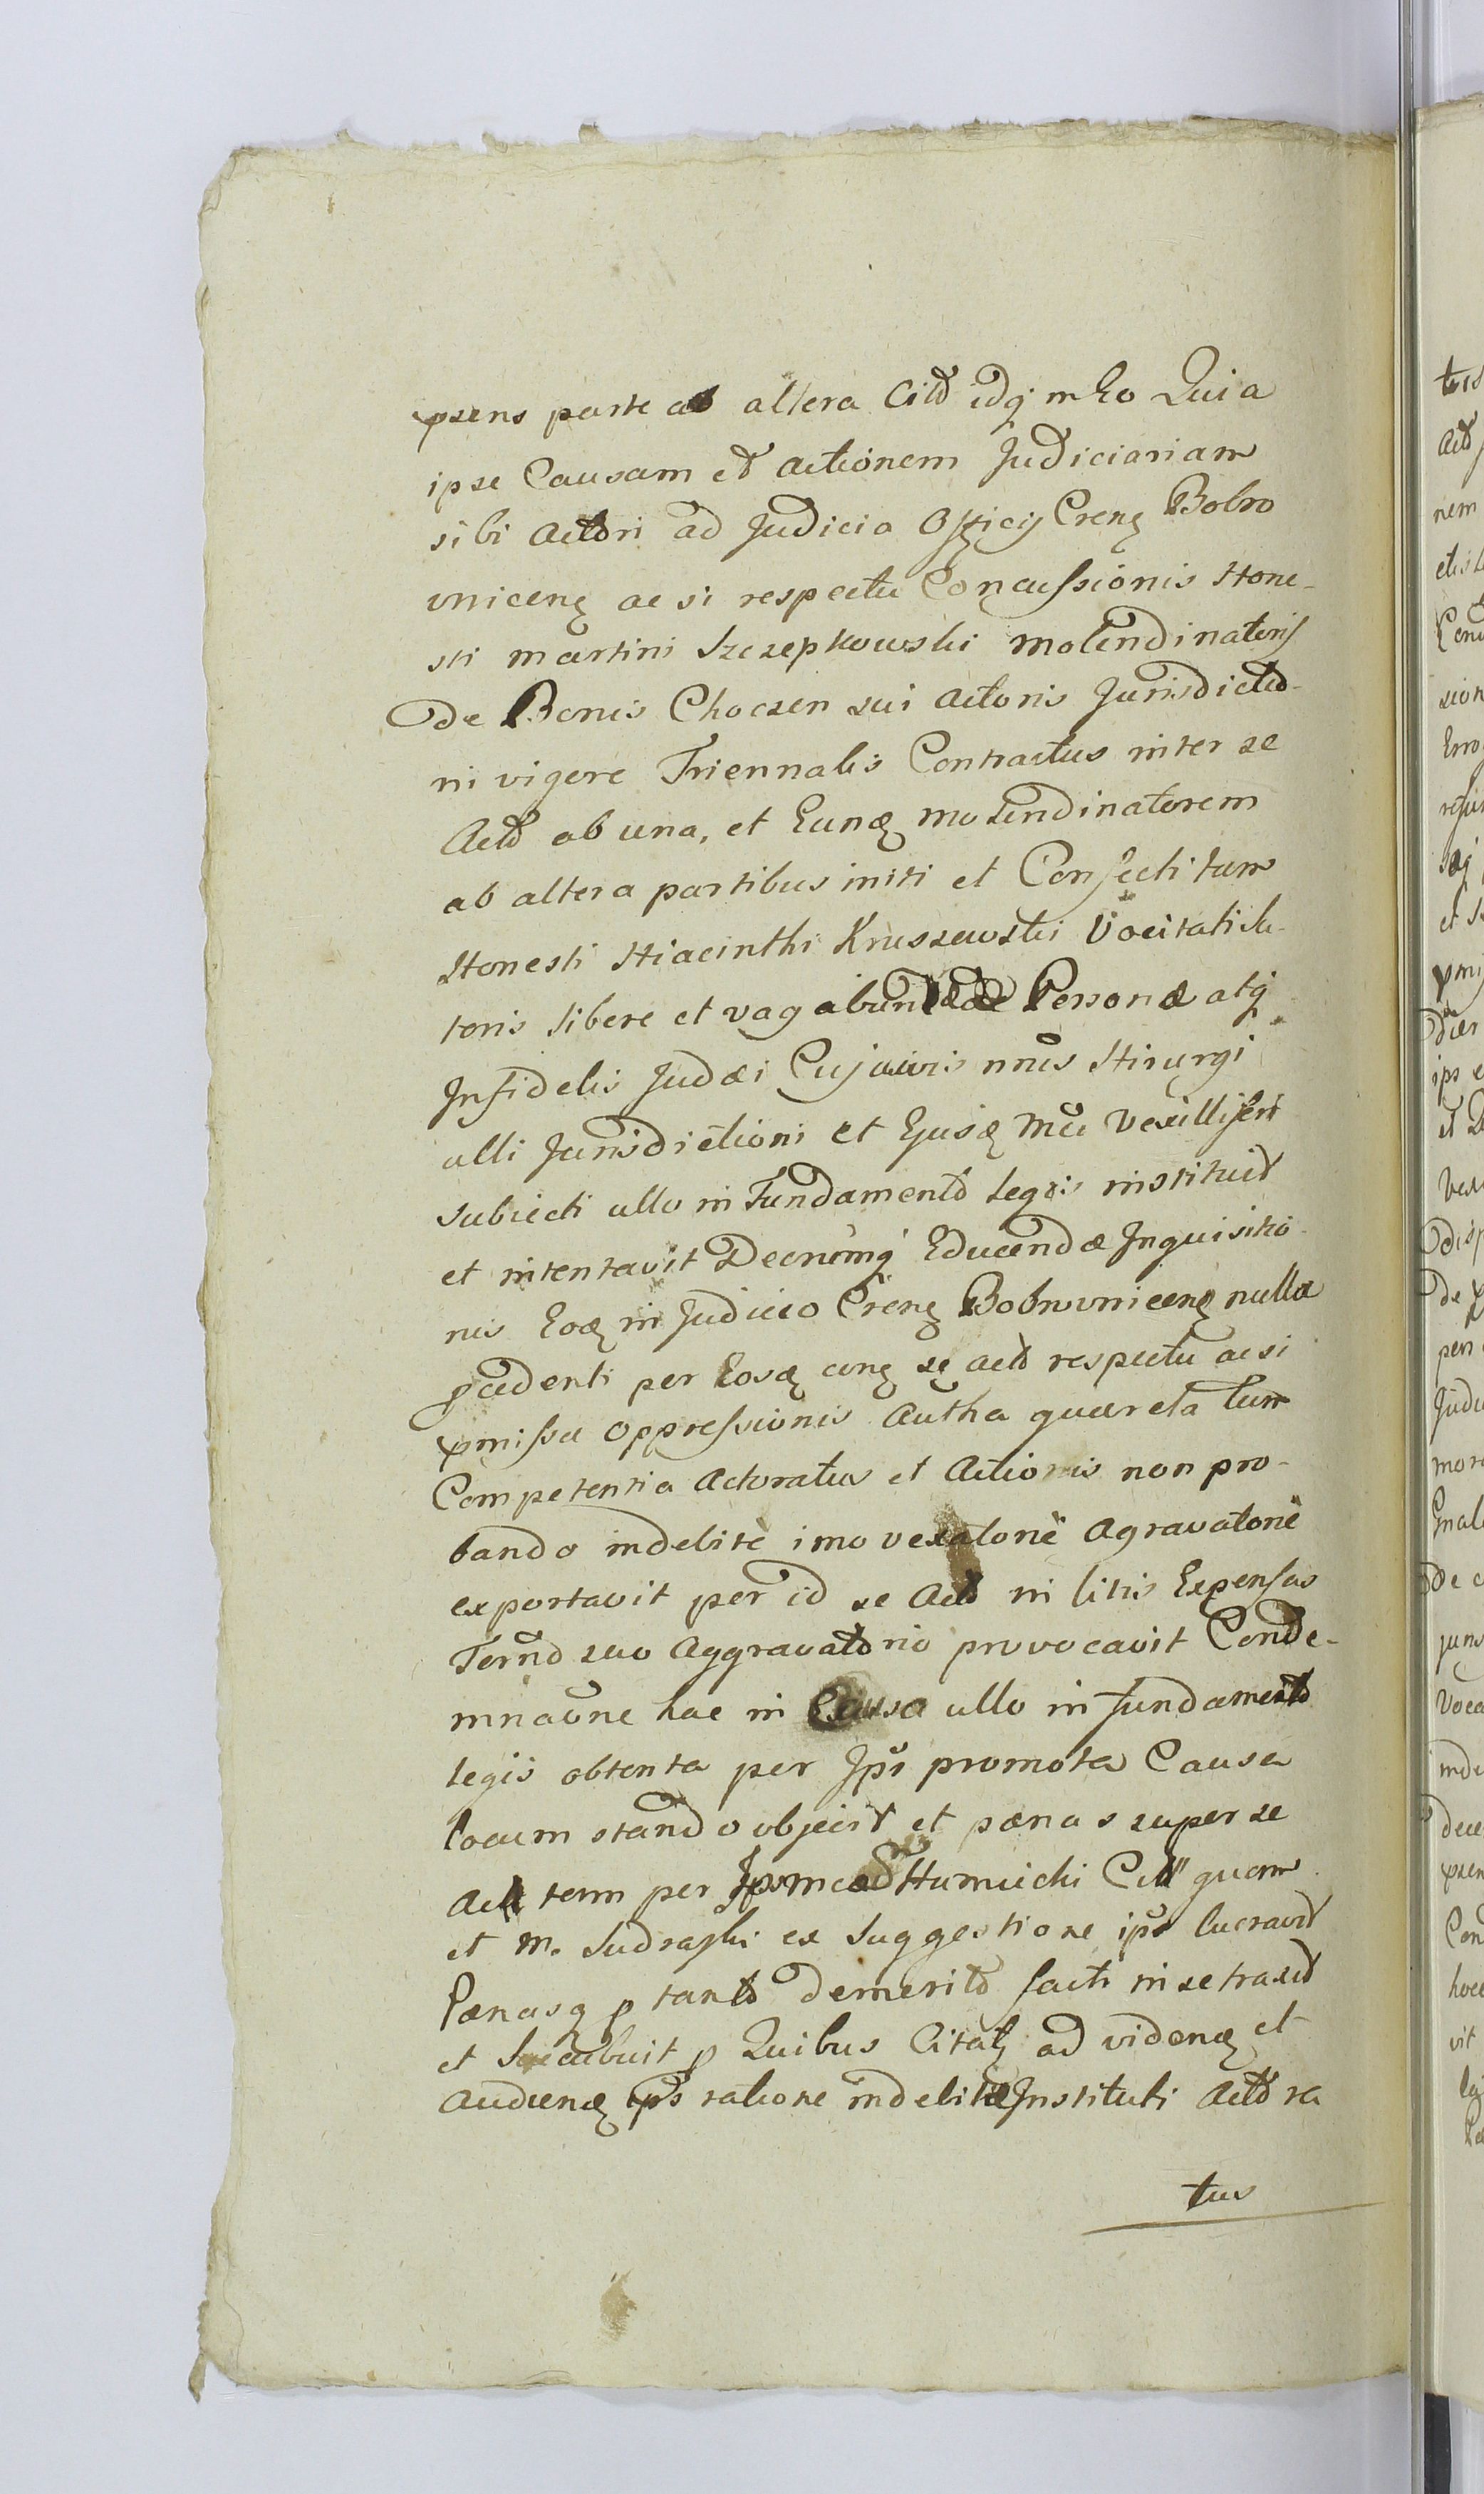 psens parte ab altera Citt idq in Eo Quia
ipse Causam et actionem Judiciariam
sibi Actori ad Judicia Officij Crenz Bobro
vnicenz ac si respectu Concussionis Hone-
sti Martini Szczepkowski Molendinatoris
de Bonis Choczen sui Actoris Jurisdictio-
ni vigore Triennalis Contractus inter se
Actt ab una, et Eund Molendinatorem
ab altera partibus initi et Confecti tum
Honesti Hiacinthi Kruszewski Vocitati Su-
toris libere et vagabundae Personæ atq
Infidelis Judæi Cujusvis nnus Hirurgi
ulli Jurisdictioni et Ejusd Vexilliferi
subiecti ullo in Fundamento legis instituit
et intentavit Decrumq Educendæ Inquisitio-
nis Eod in Judicio Crenz Bobrovnicenz nulla
pcedenti per Eosd conz se actt respectu ac si
pmissæ oppressionis Autha quærela tum
Competentia Actoratus et Actionis non pro-
bando indebite imo vexatorie Agravatorie
exportavit per id se Actt in litis Expensas
Termo suo Aggravatorio provocavit Conde-
mnaone hac in Causa ullo in fundamento
legis obtenta per Ips promota Causa
locum standi objecit et pænas super se
Actt term per Ipsm Citt quam
et M. Sudrafski ex Suggestione ips lucravit
Pænasq p tanto demerito facti in se traxit
et Succubuit p Quibus Citatz ad vidend et
audiend ips ratione indebite Instituti Actora
tus